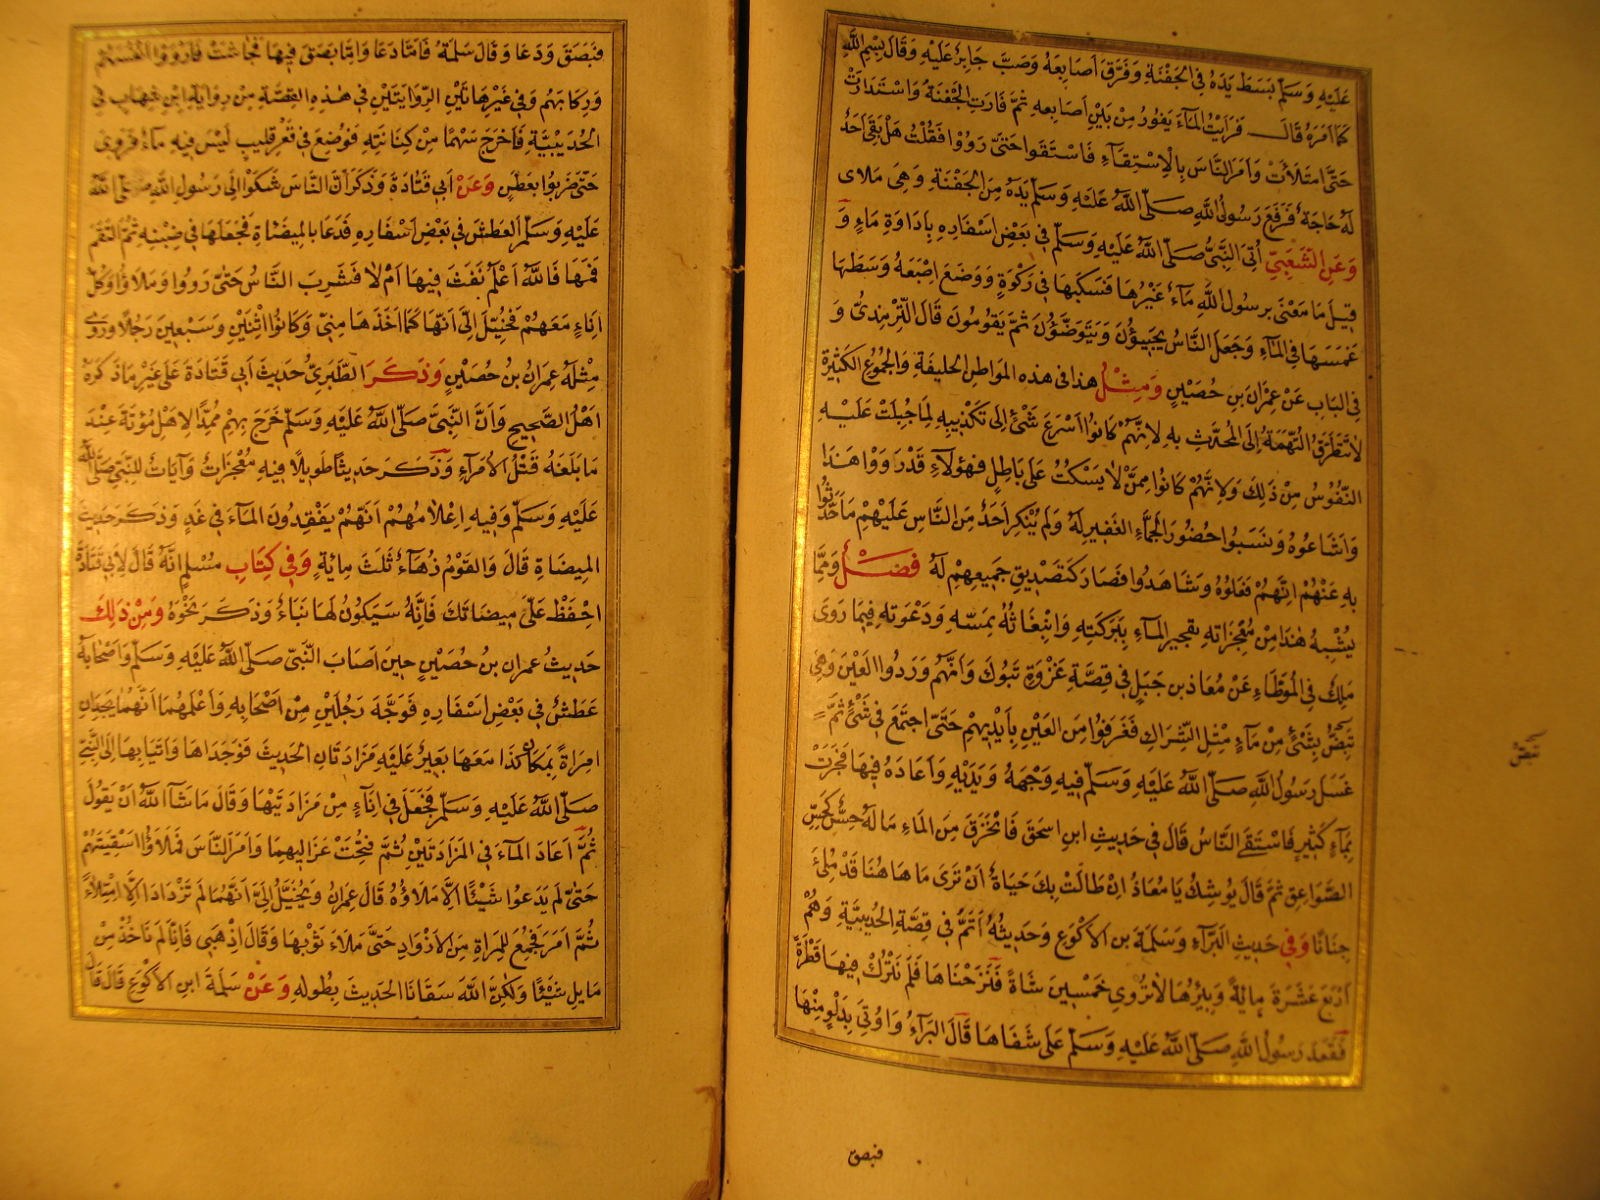 عَلَيْهِ وَسَلَّمَ بَسَطَ يَدَهُ فِي الْجَفْنَةِ وَفَرَّقَ اَصَابِعَهُ وَصَبَّ جَابِرٌ عَلَيْهِ وَقَالَ بِسْمِ اللّٰهِ
كَمَا اَمَرَهُ قَالَ فَرَأَيْتُ الْمَآءَ يَفُورُ مِنْ بَيْنِ اَصَابِعِهِ ثُمَّ فَارَتِ الْجَفْنَةُ وَاسْتَدَارَتْ
حَتَّى امْتَلَأَتْ وَاَمَرَ النَّاسَ بِالْاِسْتِقَآءِ فَاسْتَقَوْا حَتَّى رَوُوْا فَقُلْتُ هَلْ بَقِيَ اَحَدٌ
لَهُ حَاجَةٌ فَرَفَعَ رَسُولُ اللّٰهِ صَلَّى اللّٰهُ عَلَيْهِ وَسَلَّمَ يَدَهُ مِنَ الْجَفْنَةِ وَهِيَ مَلْاى
وَعَنِ الشَّعْبِيِّ اُتِيَ النَّبِيُّ صَلَّى اللّٰهُ عَلَيْهِ وَسَلَّمَ فِي بَعْضِ اَسْفَارِهِ بِاِدَاوَةِ مَاءٍ وَ
قِيلَ مَا مَعَنَا يَرسُولَ اللّٰهِ مَآءٌ غَيْرُهَا فَسَكَبَهَا فِي رَكْوَةٍ وَوَضَعَ اِصْبَعَهُ وَسَطَهَا
غَمَسَهَا فِي الْمَآءِ وَجَعَلَ النَّاسُ يَجِيؤُنَ وَيَتَوَضَّؤُنَ ثُمَّ يَقُومُونَ قَالَ التِّرْمِذِيُّ وَ
فِي الْبَابِ عَنْ عِمْرَانَ بنِ حُصَيْنٍ وَمِثْلُ هذا فى هذه المَواطِنِ الحَفِيلَةِ وَالْجُمُوعِ الْكَثِيرَةِ
لاتَتَطَرَّقُ التُّهَمَةُ اِلَى الْمُحَدِّثِ بِهِ لِاَنَّهُمْ كَانُوا اَسْرَعَ شَيْئٍ اِلَى تَكْذِيبِهِ لِمَا جُبِلَتْ عَلَيْهِ
النُّفُوسُ مِنْ ذٰلِكَ وَلِاَنَّهُمْ كَانُوا مِمَّنْ لَا يَسْكُتُ عَلَى بَاطِلٍ فهؤلآءِ قَدْ رَوَوْا هٰذَا
وَاَشَاعُوهُ وَنَسَبُوا حُضُورَ الْجَمَّاءِ الْغَفِيرِ لَهُ وَلَمْ يُنْكِرْ اَحَدٌ مِنَ النَّاسِ عَلَيْهِمْ مَا حَدَّثُوا
بِهِ عَنْهُمْ اَنَّهُمْ فَعَلُوهُ وَشَاهَدُوا فَصَارَ كَتَصْدِيقِ جَمِيعِهِمْ لَهُ فَصْلٌ وَمِمَّا
يُشْبِهُ هٰذَا مِنْ مُعْجِزَاتِهِ تَفْجِيرُ الْمَآءِ بِبَرَكَتِهِ وَانْبِعَاثُهُ بِمَسِّهِ وَدَعْوَتِهِ فِيمَا رَوٰى
مٰلِكٌ فِي الْمُوَطَّاءِ عَنْ مُعَاذِ بنِ جَبَلٍ فِي قِصَّةِ غَزْوَةِ تَبُوكَ وَاَنَّهُمْ وَرَدُوا الْعَيْنَ وَهِيَ
تَبِضُّ بِشَيْئٍ مِنْ مَآءٍ مِثْلِ الشِّرَاكِ فَغَرَفُوا مِنَ الْعَيْنِ بِاَيْدِيهِمْ حَتَّى اجْتَمَعَ فِي شَيْئٍ ثُمَّ
غَسَلَ رَسُولُ اللّٰهِ صَلَّى اللّٰهُ عَلَيْهِ وَسَلَّمَ فِيهِ وَجْهَهُ وَيَدَيْهِ وَاَعَادَهُ فِيهَا فَجَرَتْ
بِمَآءٍ كَثِيرٍ فَاسْتَقَى النَّاسُ قَالَ فِي حَدِيثِ ابنِ اِسْحٰقَ فَانْخَرَقَ مِنَ الْمَاءِ مَا لَهُ حِسٌّ كَحِسِّ
الصَّوَاعِقِ ثُمَّ قَالَ يُوشِكُ يَا مُعَاذُ اِنْ طَالَتْ بِكَ حَيَاةٌ اَنْ تَرٰى مَا هَاهُنَا قَدْ مُلِئَ
جِنَانًا وَفِي حَدِيثِ الْبَرَآءِ وَسَلَمَةَ بنِ الْاَكْوَعِ وَحَدِيثُهُ اَتَمُّ فِي قِصَّةِ الْحُدَيْبِيَّةِ وَهُمْ
اَرْبَعَ عَشْرَةَ مِائَةً وَبِئْرُهَا لَا تُرْوِي خَمْسِينَ شَاةً فَنَزَحْنَاهَا فَلَمْ نَتْرُكْ فِيهَا قَطْرَةً
فَقَعَدَ رَسُولُ اللّٰهِ صَلَّى اللّٰهُ عَلَيْهِ وَسَلَّمَ عَلَى شَفَاهَا قَالَ الْبَرَآءُ وَاُوتِيَ بِدَلْوٍ مِنْهَا
فبصق
تَبِضُّ
فَبَصَقَ وَدَعَا وَقَالَ سَلَمَةُ فَاَمَّا دَعَا وَاِمَّا بَصَقَ فِيهَا فَجَاشَتْ فَاَرْوَوْا اَنْفُسَهُمْ
وَرِكَابَهُمْ وَفِي غَيْرِ هَاتَيْنِ الرِّوَايَتَيْنِ فِي هٰذِهِ الْقِصَّةِ مِنْ رِوَايَةِ ابْنِ شِهَابٍ فِي
الْحُدَيْبِيَّةِ فَاَخْرَجَ سَهْمًا مِنْ كِنَانَتِهِ فَوُضِعَ فِي قَعْرِ قَلِيبٍ لَيْسَ فِيهِ مَآءٌ فَرَوِيَ
حَتّٰى ضَرَبُوا بِعَطَنٍ وَعَنْ اَبِي قَتَادَةَ وَذَكَرَ اَنَّ النَّاسَ شَكَوْا اِلَى رَسُولِ اللّٰهِ صَلَّى اللّٰهُ
عَلَيْهِ وَسَلَّمَ الْعَطَشَ فِي بَعْضِ اَسْفَارِهِ فَدَعَا بِالْمِيضَاةِ فَجَعَلَهَا فِي ضِبْنِهِ ثُمَّ الْتَقَمَ
فَمَهَا فَاللّٰهُ اَعْلَمُ نَفَثَ فِيهَا اَمْ لَا فَشَرِبَ النَّاسُ حَتّٰى رَوُوا وَمَلَاؤُا كُلَّ
اِنَاءٍ مَعَهُمْ فَخُيِّلَ اِلَيَّ اَنَّهَا كَمَا اَخَذَهَا مِنِّي وَكَانُوا اثْنَيْنِ وَسَبْعِينَ رَجُلًا وَرَوٰى
مِثْلَهُ عِمْرَانُ بنُ حُصَيْنٍ وَذَكَرَ الطَّبَرِيُّ حَدِيثَ اَبِي قَتَادَةَ عَلَى غَيْرِ مَا ذَكَرَهُ
اَهْلُ الصَّحِيحِ وَاَنَّ النَّبِيَّ صَلَّى اللّٰهُ عَلَيْهِ وَسَلَّمَ خَرَجَ بِهِمْ مُمِدًّا لِاَهْلِ مُؤْتَةَ عِنْدَ
مَا بَلَغَهُ قَتْلُ الْاُمَرَآءِ وَذَكَرَ حَدِيثًا طَوِيلًا فِيهِ مُعْجِزَاتٌ وَآيَاتٌ لِلنَّبِيِّ صَلَّى اللّٰهُ
عَلَيْهِ وَسَلَّمَ وَفِيهِ اِعْلَامُهُمْ اَنَّهُمْ يَفْقِدُونَ الْمَآءَ فِي غَدٍ وَذَكَرَ حَدِيثَ
الْمِيضَاةِ قَالَ وَالْقَوْمُ زُهَآءُ ثَلٰثِ مِائَةٍ وَفِي كِتَابِ مُسْلِمٍ اَنَّهُ قَالَ لِاَبِي قَتَادَةَ
احْفَظْ عَلَيَّ مِيضَاتَكَ فَاِنَّهُ سَيَكُونُ لَهَا نَبَاءٌ وَذَكَرَ نَحْوَهُ وَمِنْ ذٰلِكَ
حَدِيثُ عِمْرَانَ بنِ حُصَيْنٍ حِينَ اَصَابَ النَّبِيَّ صَلَّى اللّٰهُ عَلَيْهِ وَسَلَّمَ وَاَصْحَابَهُ
عَطَشٌ فِي بَعْضِ اَسْفَارِهِ فَوَجَّهَ رَجُلَيْنِ مِنْ اَصْحَابِهِ وَاَعْلَمَهُمَا اَنَّهُمَا يَجِدَانِ
امْرَاةً بِمَكَانِ كَذَا مَعَهَا بَعِيرٌ عَلَيْهِ مَزَادَتَانِ الْحَدِيثَ فَوَجَدَاهَا وَاَتَيَا بِهَا اِلَى النَّبِيِّ
صَلَّى اللّٰهُ عَلَيْهِ وَسَلَّمَ فَجَعَلَ فِي اِنَآءٍ مِنْ مَزَادَتَيْهَا وَقَالَ مَا شَآءَ اللّٰهُ اَنْ يَقُولَ
ثُمَّ اَعَادَ الْمَآءَ فِي الْمَزَادَتَيْنِ ثُمَّ فُتِحَتْ عَزَالِيهِمَا وَاَمَرَ النَّاسَ فَمَلَاؤُا اَسْقِيَتَهُمْ
حَتّٰى لَمْ يَدَعُوا شَيْئًا اِلَّا مَلَاؤُهُ قَالَ عِمْرَانُ وَيُخَيَّلُ اِلَيَّ اَنَّهُمَا لَمْ تَزْدَادَا اِلَّا امْتِلَاءً
ثُمَّ اَمَرَ فَجُمِعَ لِلْمَرْاَةِ مِنَ الْاَزْوَادِ حَتَّى مَلَاءَ ثَوْبَهَا وَقَالَ اذْهَبِي فَاِنَّا لَمْ نَاخُذْ مِنْ
مَايِكِ شَيْئًا وَلٰكِنَّ اللّٰهَ سَقَانَا الْحَدِيثَ بِطُولِهِ وَعَنْ سَلَمَةَ ابنِ الْاَكْوَعِ قَالَ قَالَ